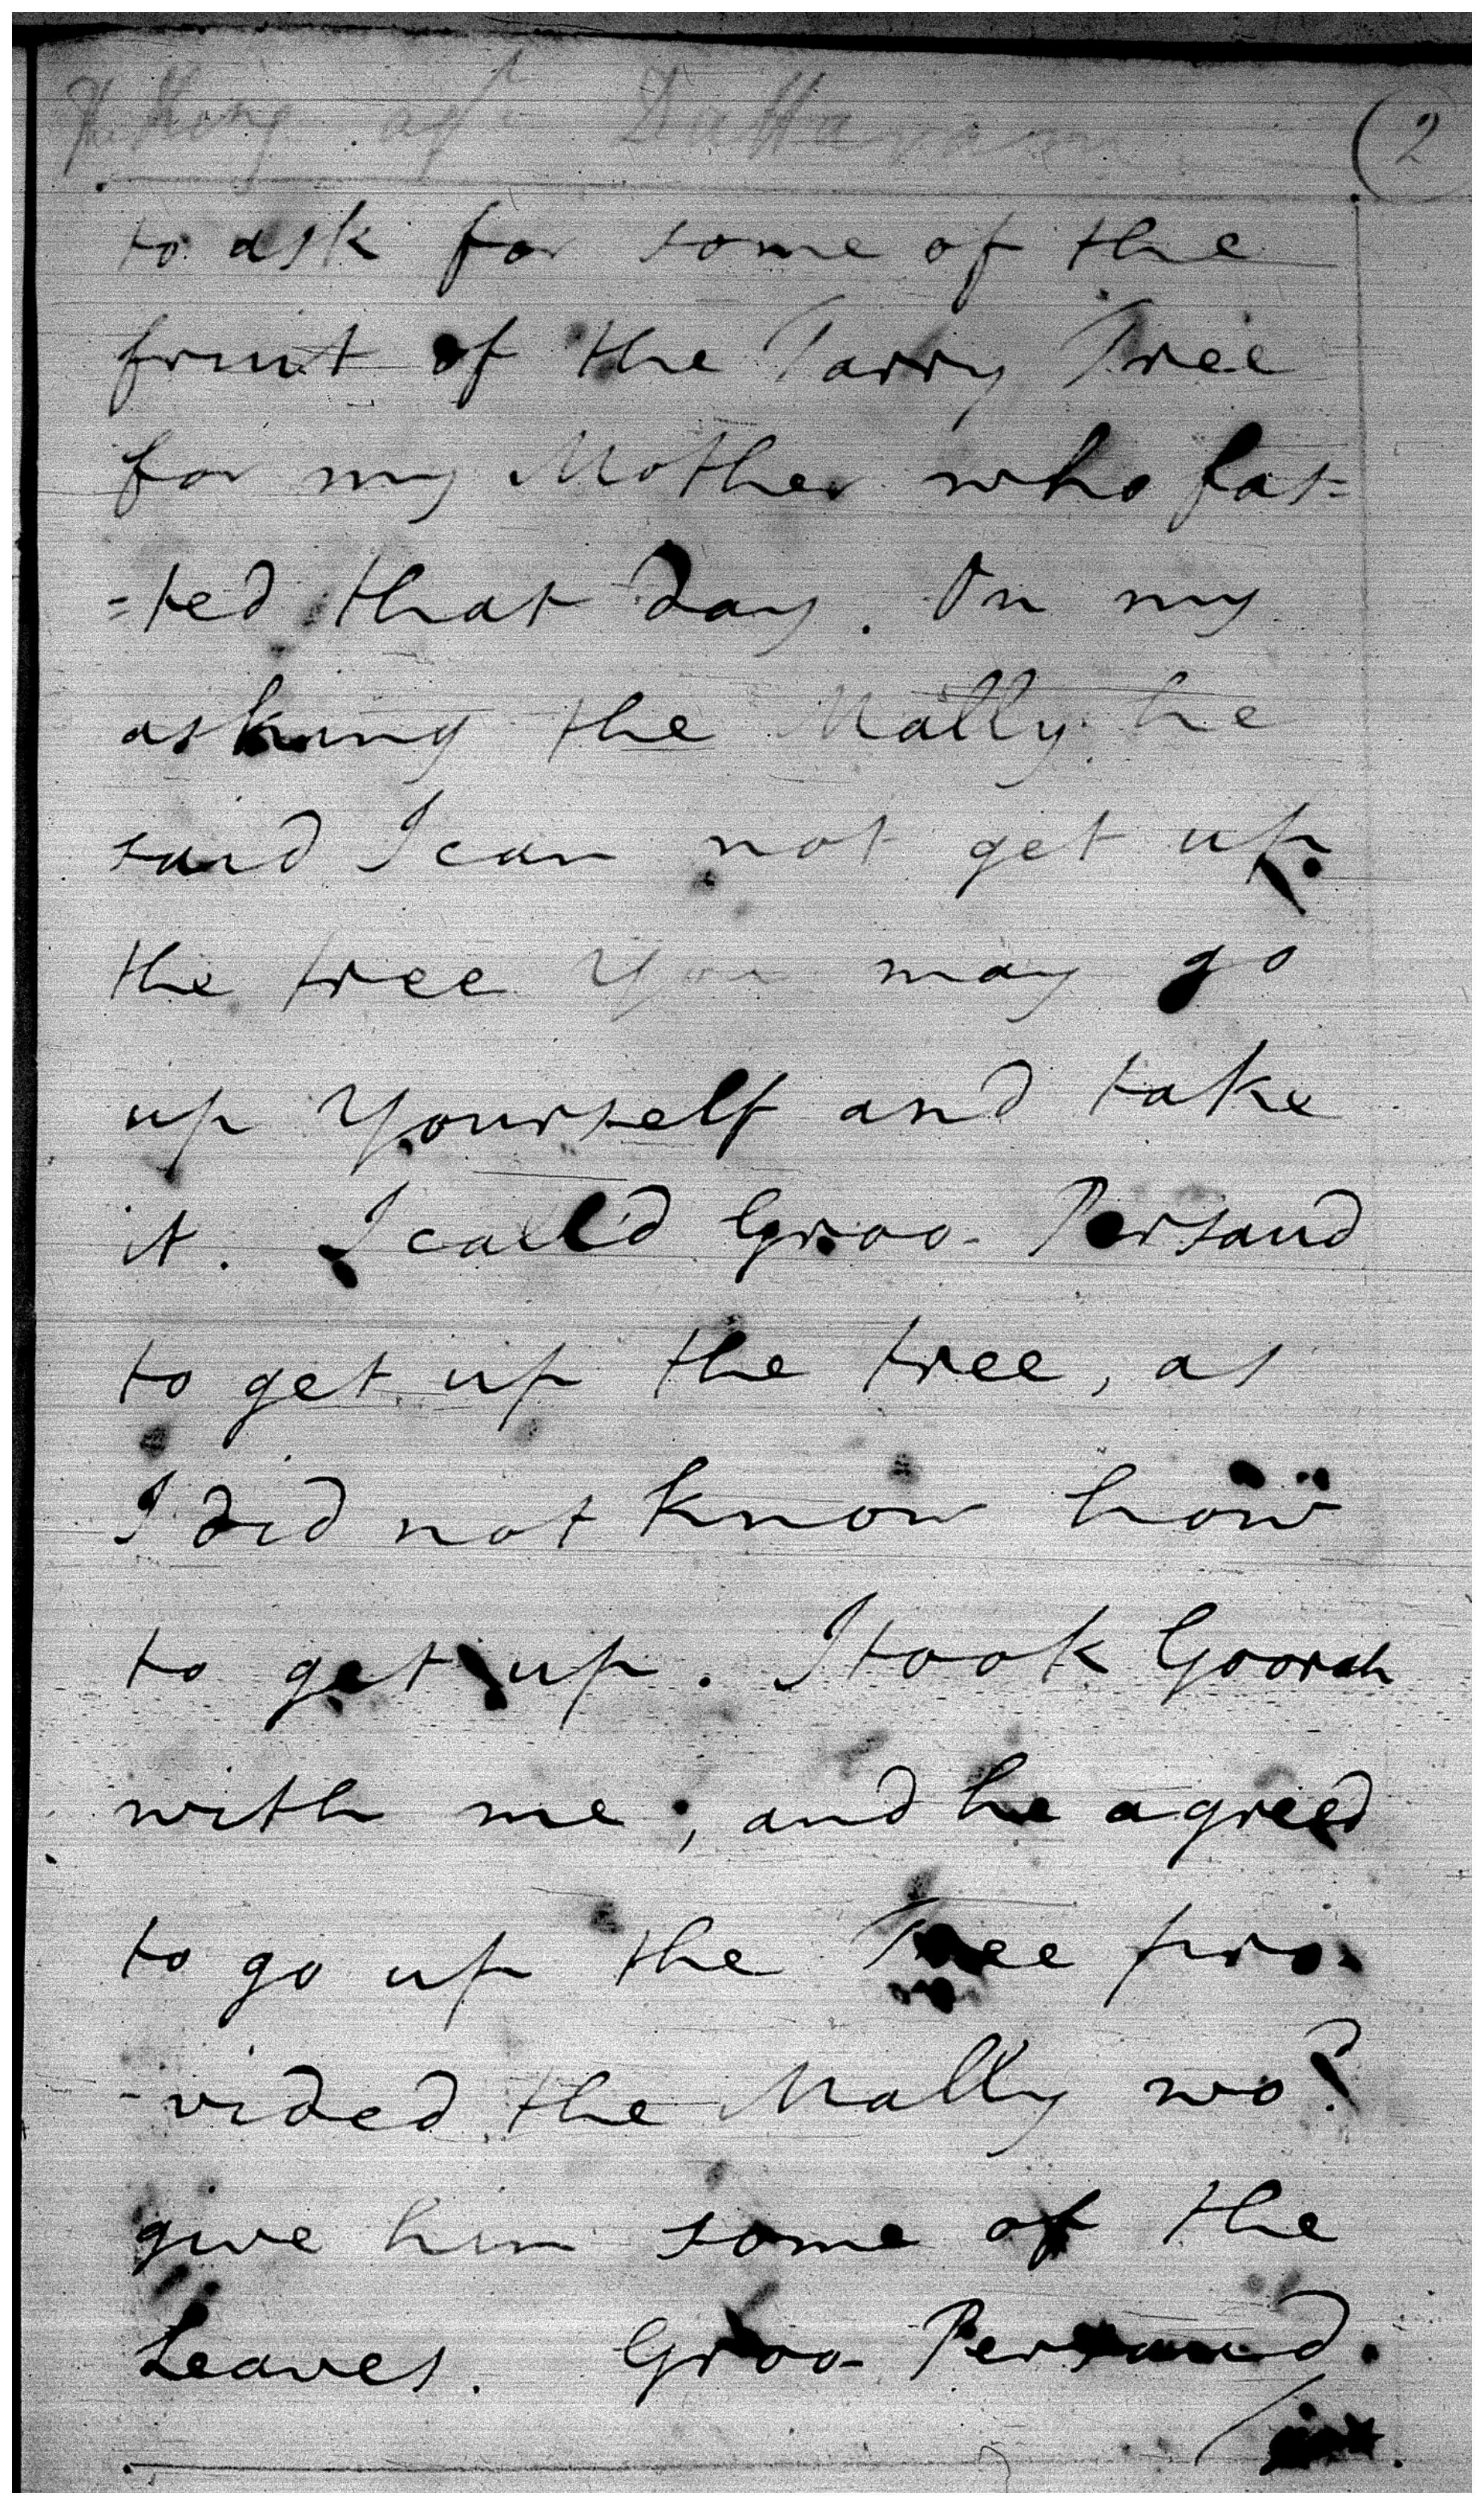 The King agt Dattaram (2
to ask for some of the
fruit of the Tarry Tree
for my Mother who fas=
=ted that day. On my
asking the Mally he
said I can not get up
the tree You may go
up Yourself and take
it. I call'd Groo- Persaud
to get up the tree, as
I did not know how
to get up. I took Gooroh
with me; and he agreed
to go up the Tree pro-
-vided the Mally wod
give him some of the
Leaves. Groo- Persaud.